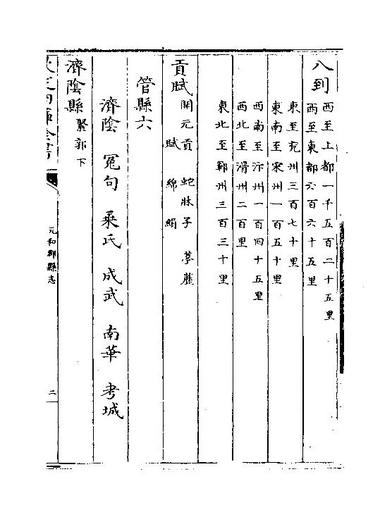 八到
西至上都一千五百二十五里
西至東都六百六十五里
東至兗州三百七十里
東南至宋州一百五十里
西南至汴州一百四十五里
西北至滑州二百里
東北至鄆州三百三十里
貢賦
開元貢
蛇牀子
葶藶
賦
綿
絹
管縣六
濟陰
冤句
乗氏
成武
南華
考城
濟陰縣
緊郭
下
元和郡縣志
二